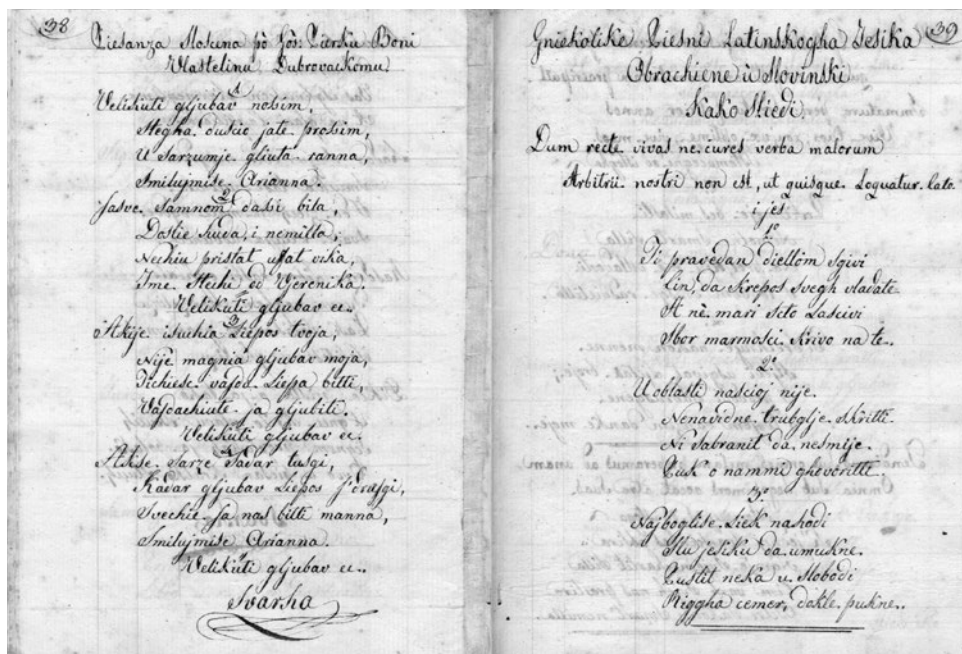 38
Piesanza Slosena pò Gos: Piersku Boni
Vlastelinu Dubrovackomu.
1
Velikuti gljubav nosim,
Stegha duscio jate prosim,
U sarzumje gliuta ranna,
Smilujmise Arianna.
2
Jasve samnom dassi bila,
Dostie huda, i nemilla,
Nechiu pristat uffat vika,
Ime stechi od Vjerenika.
Velikuti gljubav ec.
3
Akije isuchia Liepos tvoja,
Nije magnia gljubav moja,
Tichiesc vasda Liepa bitti,
Vasdachiute ja gljubiti.
Velikuti gljubav ec.
4
Akise sarze sadar tusgi,
Kadar gljubav Liepos
Svechie ja nas bitti manna,
Smilujmise Arianna.
Velikuti gljubav ec.
Svarha
39
Gniekolike Piesni Latinskogha Jesika
Obrachiene ù Slovinski
Kako Sliedi.
Dum recte vivas ne cures verba malorum
Arbitrii nostri non est, ut quisque Loquatur. Cato.
i jes
1º
Ti pravedan diellom sgivi
Cin, da Krepos svegh vladate
A nè mari scto Lascivi
Sbor marmosci Krivo na te.
2º
U oblasti nascioj nije
Nenavidne trubglje skritti
Ni sabranit da nesmije
Puk o nammi ghovoritti
3º
Najboglise Liek nahodi
Slu jesiku da umukne
Pustit neka u Slobodi
Riggha cemer, dakle pukne.